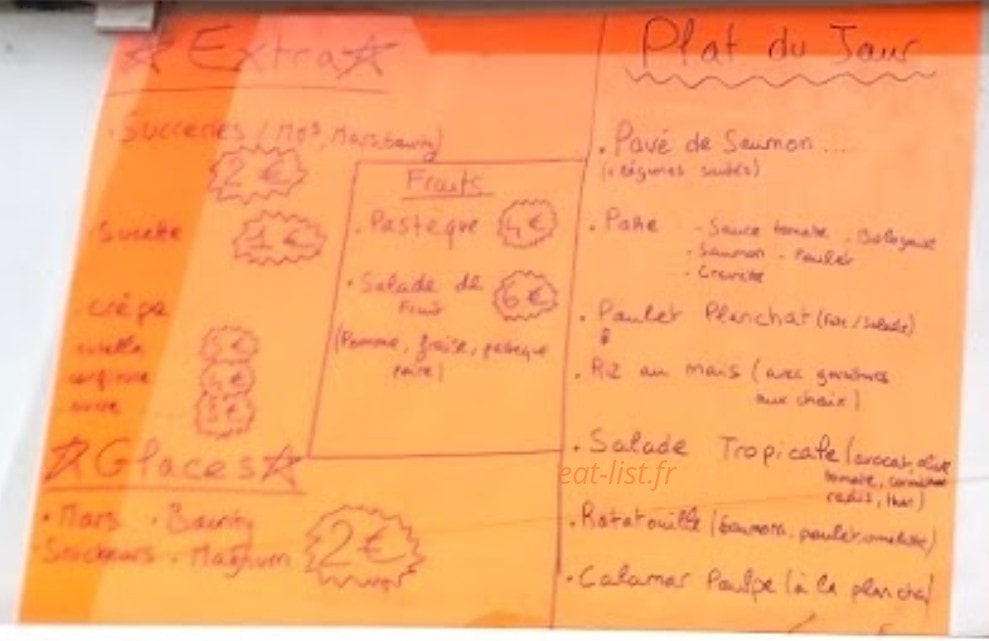 ☆ Extra ☆
• Succeries (M&S, Mars, bounty)
2€
Sucette 1€
• crêpe
nutella 5€
confiture 4€
sucre 3€
☆ Glaces ☆
• Mars • Bounty
Snickeurs • Magnum 2€
Fruits
• Pasteque 4€
• Salade de 6€
Fruit
(Pomme, fraise, pasteque
poire)
Plat du Jour
• Pavé de Saumon ...
(+ légumes sautés)
• Pate - Sauce tomate - Bolognaise
- Saumon - Poulet
- Crevette
• Poulet Planchat (rize/salade)
• Riz au mais (avec garnitures
aux choix)
• Salade Tropicale (avocat, olive
tomate, cornichon
radis, thon)
• Ratatouille (saumon, poulet, omelette)
• Calamar Poulpe (à la plancha)
eat-list.fr